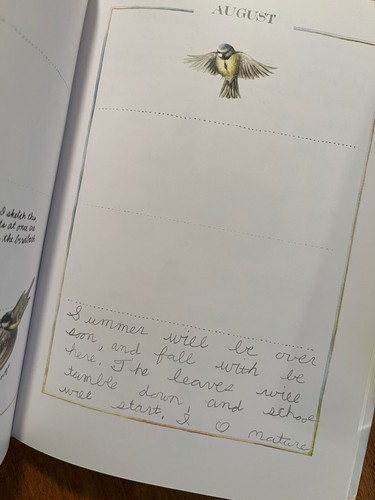 AUGUST
I sketch this
at once on
the birdbath
Summer will be over
soon, and fall with be
here. The leaves will
tumble down, and school
will start. I ♡ nature